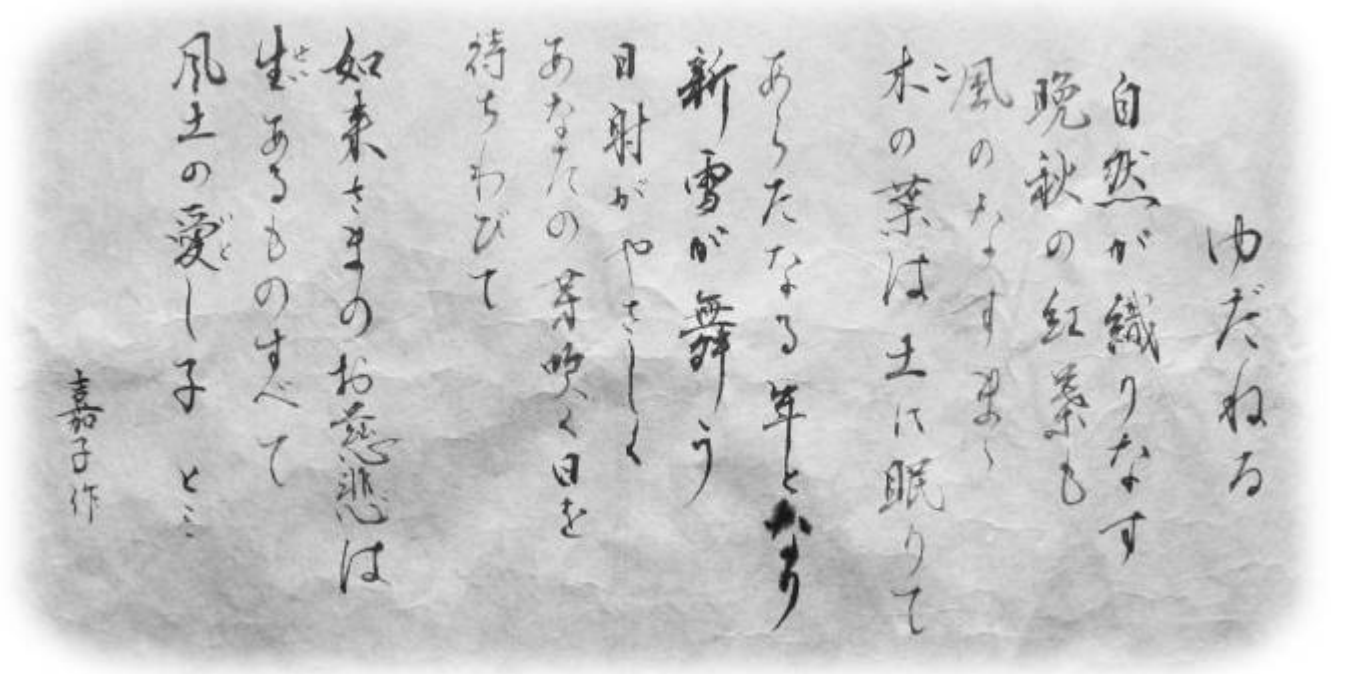 ゆだねる
自然が織りなす
晩秋の紅葉も
風のなすまゝ
木の葉は土に眠りて
あらたなる年となり
新雪が舞う
日射がやさしく
あなたの芽吹く日を
待ちわびて
如来さまのお慈悲は
生あるものすべて
風土の愛し子と…
嘉子作